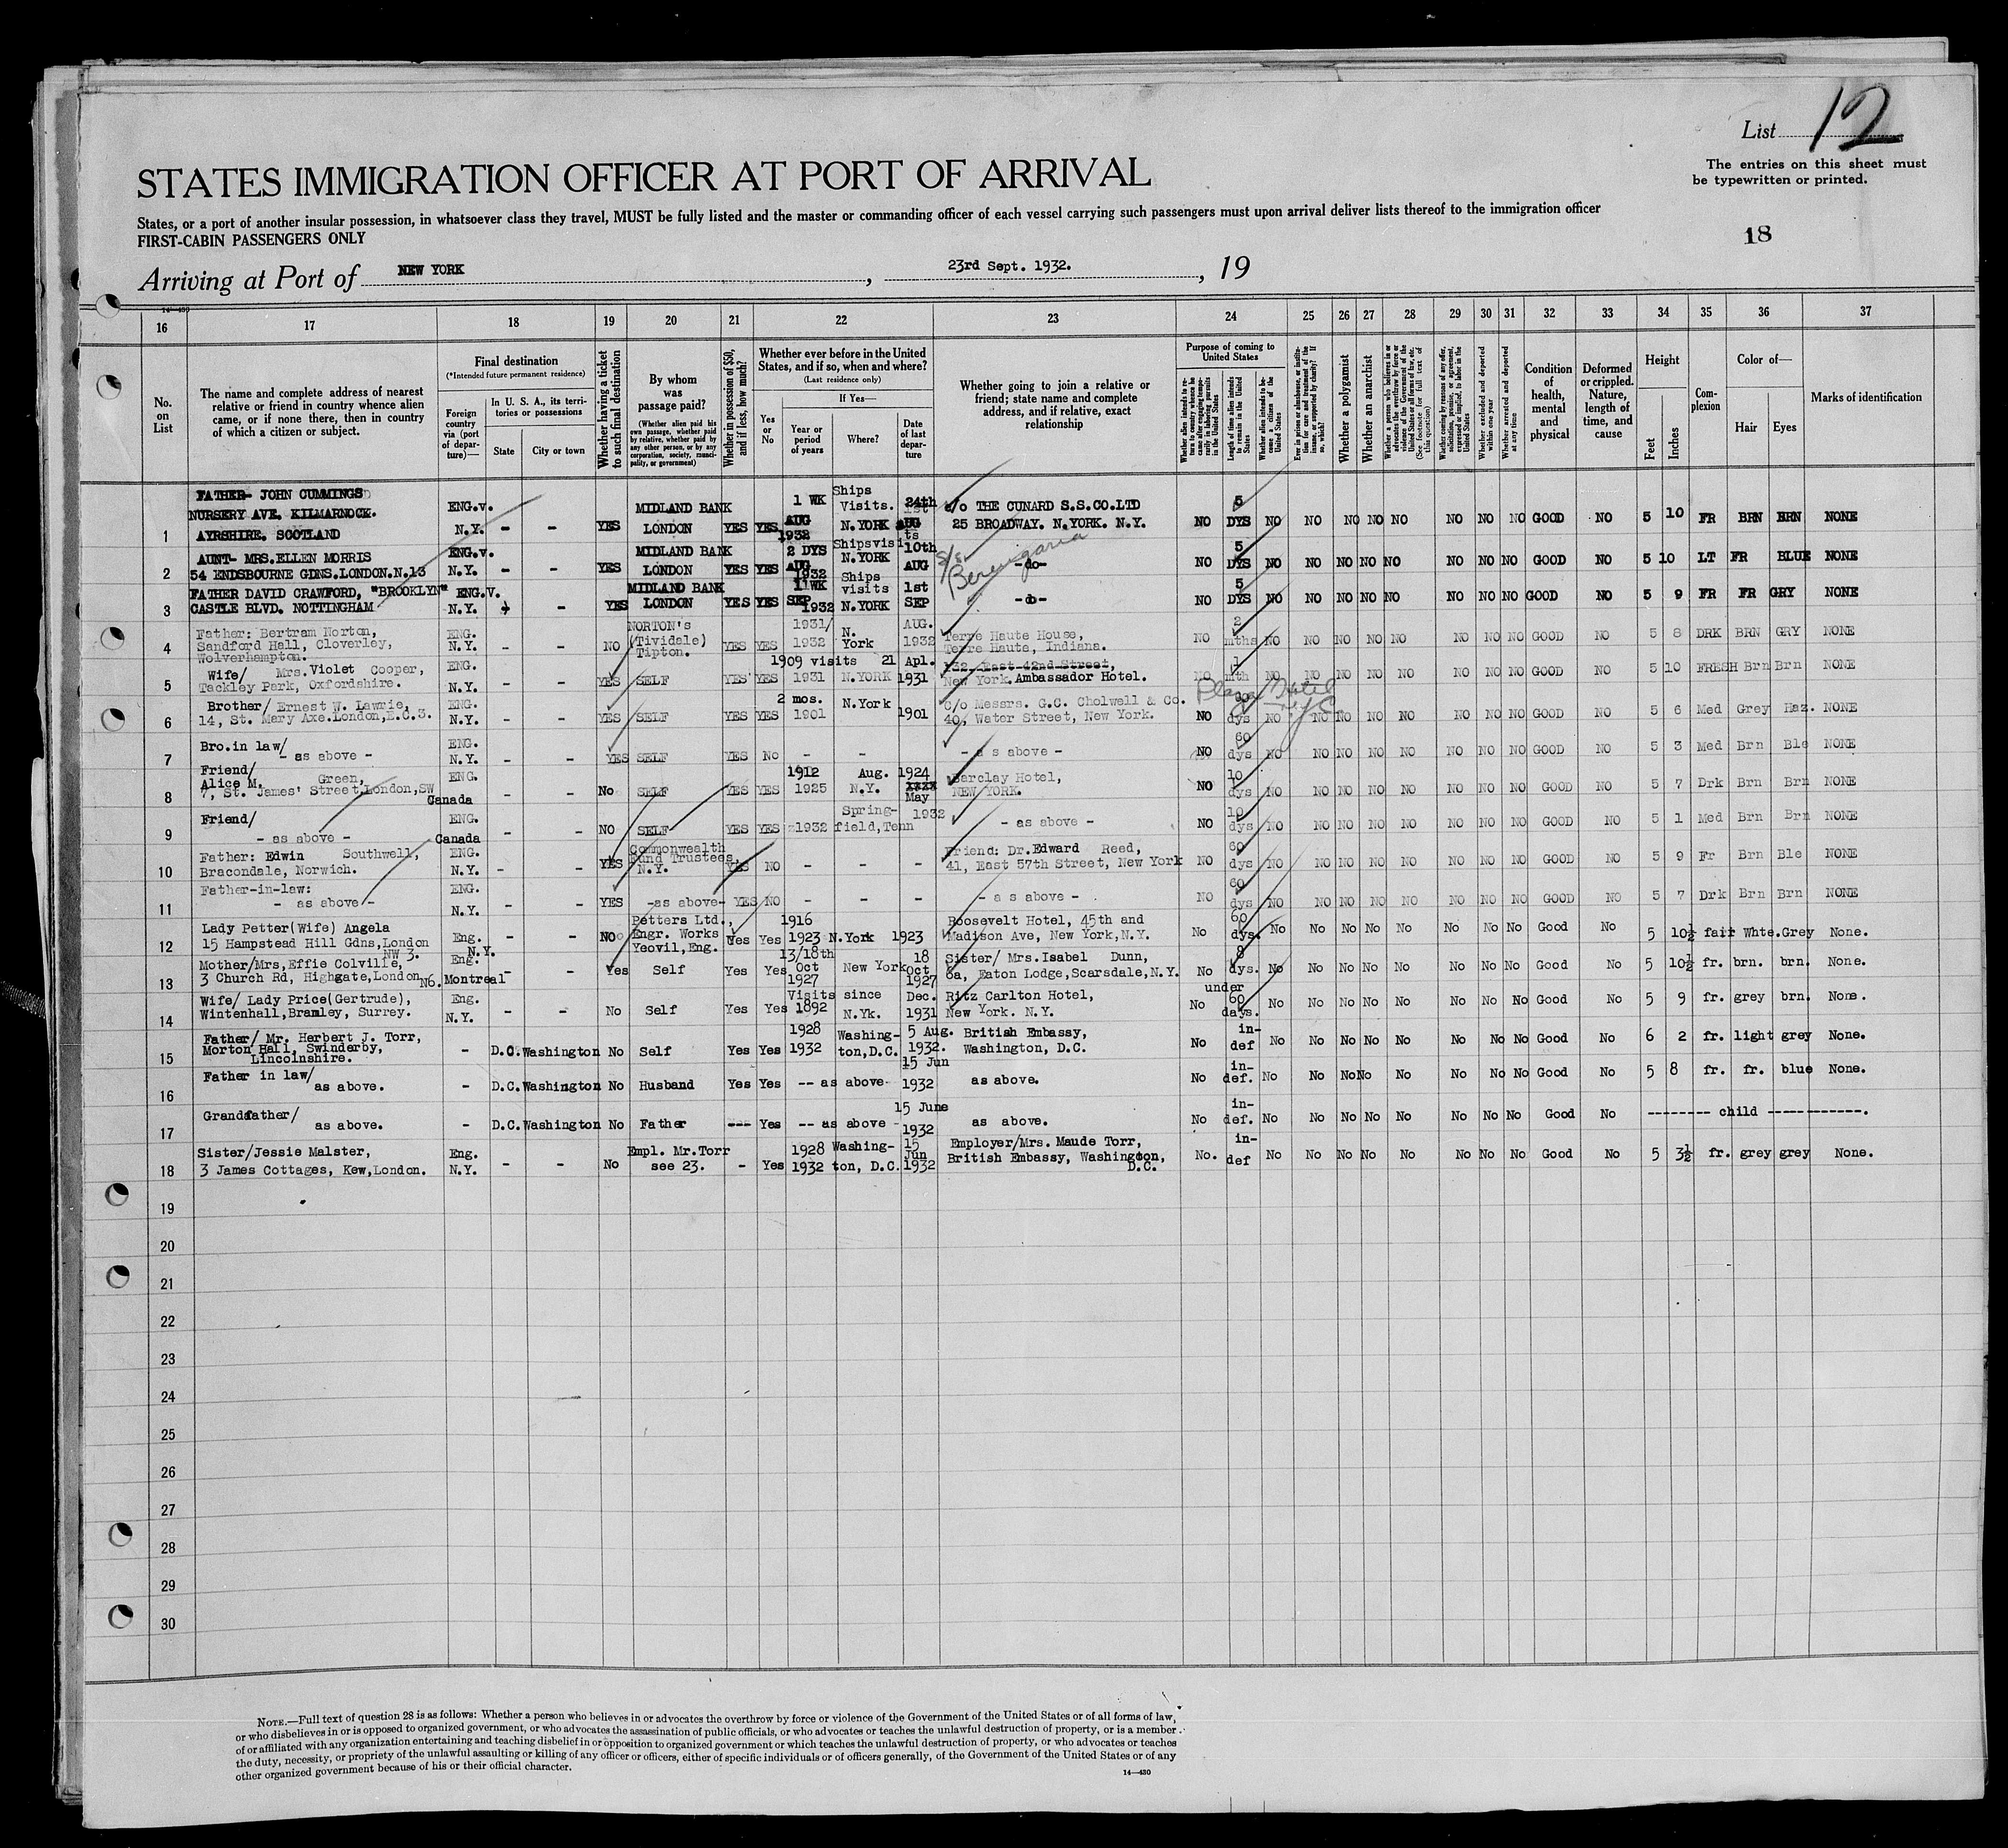 List 12
The entries on this sheet must
be typewritten or printed.
STATES IMMIGRATION OFFICER AT PORT OF ARRIVAL
States, or a port of another insular possession, in whatsoever class they travel, MUST be fully listed and the master or commanding officer of each vessel carrying such passengers must upon arrival deliver lists thereof to the immigration officer
FIRST-CABIN PASSENGERS ONLY
18
Arriving at Port of NEW YORK, 23rd Sept. 1932., 19
14-430
16 17 18 19 20 21 22 23 24 25 26 27 28 29 30 31 32 33 34 35 36 37
No. on List
The name and complete address of nearest
relative or friend in country whence alien
came, or if none there, then in country
of which a citizen or subject.
Final destination
(*Intended future permanent residence)
Foreign country via (port of departure)—
In U. S. A., its territories or possessions
State
City or town
Whether having a ticket to such final destination
By whom was passage paid?
(Whether alien paid his own passage, whether paid by relative, whether paid by any other person, or by any corporation, society, municipality, or government)
Whether in possession of $50, and if less, how much?
Whether ever before in the United States, and if so, when and where?
(Last residence only)
Yes or No
If Yes—
Year or period of years
Where?
Date of last departure
Whether going to join a relative or
friend; state name and complete
address, and if relative, exact
relationship
Purpose of coming to United States
Whether alien intends to return to country whence he came after engaging temporarily in laboring pursuits in the United States
Length of time alien intends to remain in the United States
Whether alien intends to become a citizen of the United States
Ever in prison or almshouse, or institution for care and treatment of the insane, or supported by charity? If so, which?
Whether a polygamist
Whether an anarchist
Whether a person who believes in or advocates the overthrow by force or violence of the Government of the United States or all forms of law, etc. (See footnote for full text of this question)
Whether coming by reason of any offer, solicitation, promise, or agreement, expressed or implied, to labor in the United States
Whether excluded and deported within one year
Whether arrested and deported at any time
Condition of health, mental and physical
Deformed or crippled. Nature, length of time, and cause
Height
Feet
Inches
Complexion
Color of—
Hair
Eyes
Marks of identification
1 FATHER- JOHN CUMMINGS NURSERY AVE. KILMARNOCK. AYRSHIRE. SCOTLAND ENG.v. N.Y. - - YES MIDLAND BANK LONDON YES YES 1 WK AUG 1932 Ships Visits. N.YORK 24th AUG c/o THE CUNARD S.S.CO.LTD 25 BROADWAY. N.YORK. N.Y. NO 5 DYS NO NO NO NO NO NO NO NO GOOD NO 5 10 FR BRN BRN NONE
2 AUNT- MRS.ELLEN MORRIS 54 ENDSBOURNE GDNS.LONDON.N.13 ENG.v. N.Y. - - YES MIDLAND BANK LONDON YES YES 2 DYS AUG 1932 Shipsvisits N.YORK 10th AUG S/S. Berengaria -do- NO 5 DYS NO NO NO NO NO NO NO NO GOOD NO 5 10 LT FR BLUE NONE
3 FATHER DAVID CRAWFORD, "BROOKLYN" CASTLE BLVD. NOTTINGHAM ENG.V. N.Y. - - YES MIDLAND BANK LONDON YES YES 1 WK SEP 1932 Ships visits N.YORK 1st SEP -do- NO 5 DYS NO NO NO NO NO NO NO NO GOOD NO 5 9 FR FR GRY NONE
4 Father: Bertram Norton, Sandford Hall, Cloverley, Wolverhampton. ENG. N.Y. - - NO NORTON's (Tividale) Tipton. YES YES 1931/ 1932 N. York AUG. 1932 Terre Haute House, Terre Haute, Indiana. NO 2 mths NO NO NO NO NO NO NO NO GOOD NO 5 8 DRK BRN GRY NONE
5 Wife/ Mrs.Violet Cooper, Tackley Park, Oxfordshire. ENG. N.Y. - - YES SELF YES YES 1909 visits 1931 N.YORK 21 Apl. 1931 132, East 42nd Street, New York. Ambassador Hotel. NO 1 mth NO NO NO NO NO NO NO NO GOOD NO 5 10 FRESH Brn Brn NONE
Plaza Hotel NYC
6 Brother/ Ernest W. Lawrie, 14, St. Mary Axe.London,E.C.3. ENG. N.Y. - - YES SELF YES YES 2 mos. 1901 N.York 1901 c/o Messrs. G.C. Cholwell & Co. 40, Water Street, New York. NO dys NO NO NO NO NO NO NO NO GOOD NO 5 6 Med Grey Haz. NONE
7 Bro.in law/ - as above - ENG. N.Y. - - YES SELF YES NO - - - as above - NO 60 dys NO NO NO NO NO NO NO NO GOOD NO 5 3 Med Brn Ble NONE
8 Friend/ Alice M. Green, 7, St. James' Street,London,SW ENG. Canada - - No SELF YES YES 1912 1925 Aug. N.Y. 1924 XXXX May Barclay Hotel, NEW YORK. NO 10 dys NO NO NO NO NO NO NO NO GOOD NO 5 7 Drk Brn Brn NONE
9 Friend/ - as above - ENG. Canada - - NO SELF YES YES 1932 Springfield,Tenn 1932 - as above - NO 10 dys NO NO NO NO NO NO NO NO GOOD NO 5 1 Med Brn Brn NONE
10 Father: Edwin Southwell, Bracondale, Norwich. ENG. N.Y. - - YES Commonwealth Fund Trustees, N.Y. YES NO - - - Friend: Dr.Edward Reed, 41, East 57th Street, New York NO 60 dys NO NO NO NO NO NO NO NO GOOD NO 5 9 Fr Brn Ble NONE
11 Father-in-law: - as above - ENG. N.Y. - - YES -as above- YES NO - - - - as above - NO 60 dys NO NO NO NO NO NO NO NO GOOD NO 5 7 Drk Brn Brn NONE
12 Lady Petter(Wife) Angela 15 Hampstead Hill Gdns,London NW 3. Eng. N.Y. - - NO Petters Ltd., Engr. Works Yeovil,Eng. Yes Yes 1916 1923 N.York 1923 Roosevelt Hotel, 45th and Madison Ave, New York,N.Y. No 60 dys. No No No No No No No No Good No 5 10½ fair Whte.Grey None.
13 Mother/Mrs,Effie Colville, 3 Church Rd, Highgate,London N6. Eng. Montreal - - Yes Self Yes Yes 13/18th Oct 1927 New York 18 Oct 1927 Sister/ Mrs.Isabel Dunn, 6a, Eaton Lodge,Scarsdale,N.Y. No 8 dys. No No No No No No No No Good No 5 10½ fr. brn. brn. None.
14 Wife/ Lady Price(Gertrude), Wintenhall,Bramley, Surrey. Eng. N.Y. - - No Self Yes Yes Visits since 1892 N.Yk. Dec. 1931 Ritz Carlton Hotel, New York. N.Y. No under 60 days. No No No No No No No No Good No 5 9 fr. grey brn. None.
15 Father/ Mr. Herbert J. Torr, Morton Hall, Swinderby, Lincolnshire. - D.C. Washington No Self Yes Yes 1928 1932 Washington,D.C. 5 Aug. 1932. British Embassy, Washington, D.C. No in-def No No No No No No No No Good No 6 2 fr. light grey None.
16 Father in law/ as above. - D.C. Washington No Husband Yes Yes -- as above- 15 Jun 1932 as above. No in-def. No No No No No No No No Good No 5 8 fr. fr. blue None.
17 Grandfather/ as above. - D.C. Washington No Father --- Yes -- as above - 15 June 1932 as above. No in-def. No No No No No No No No Good No -------- child -----------.
18 Sister/Jessie Malster, 3 James Cottages, Kew,London. Eng. N.Y. - - No Empl. Mr.Torr see 23. - Yes 1928 1932 Washington, D.C. 15 Jun 1932 Employer/Mrs. Maude Torr, British Embassy, Washington, D.C. No. in-def No No No No No No No No Good No 5 3½ fr. grey grey None.
19
20
21
22
23
24
25
26
27
28
29
30
NOTE.—Full text of question 28 is as follows: Whether a person who believes in or advocates the overthrow by force or violence of the Government of the United States or of all forms of law,
or who disbelieves in or is opposed to organized government, or who advocates the assassination of public officials, or who advocates or teaches the unlawful destruction of property, or is a member
of or affiliated with any organization entertaining and teaching disbelief in or opposition to organized government or which teaches the unlawful destruction of property, or who advocates or teaches
the duty, necessity, or propriety of the unlawful assaulting or killing of any officer or officers, either of specific individuals or of officers generally, of the Government of the United States or of any
other organized government because of his or their official character.
14—430